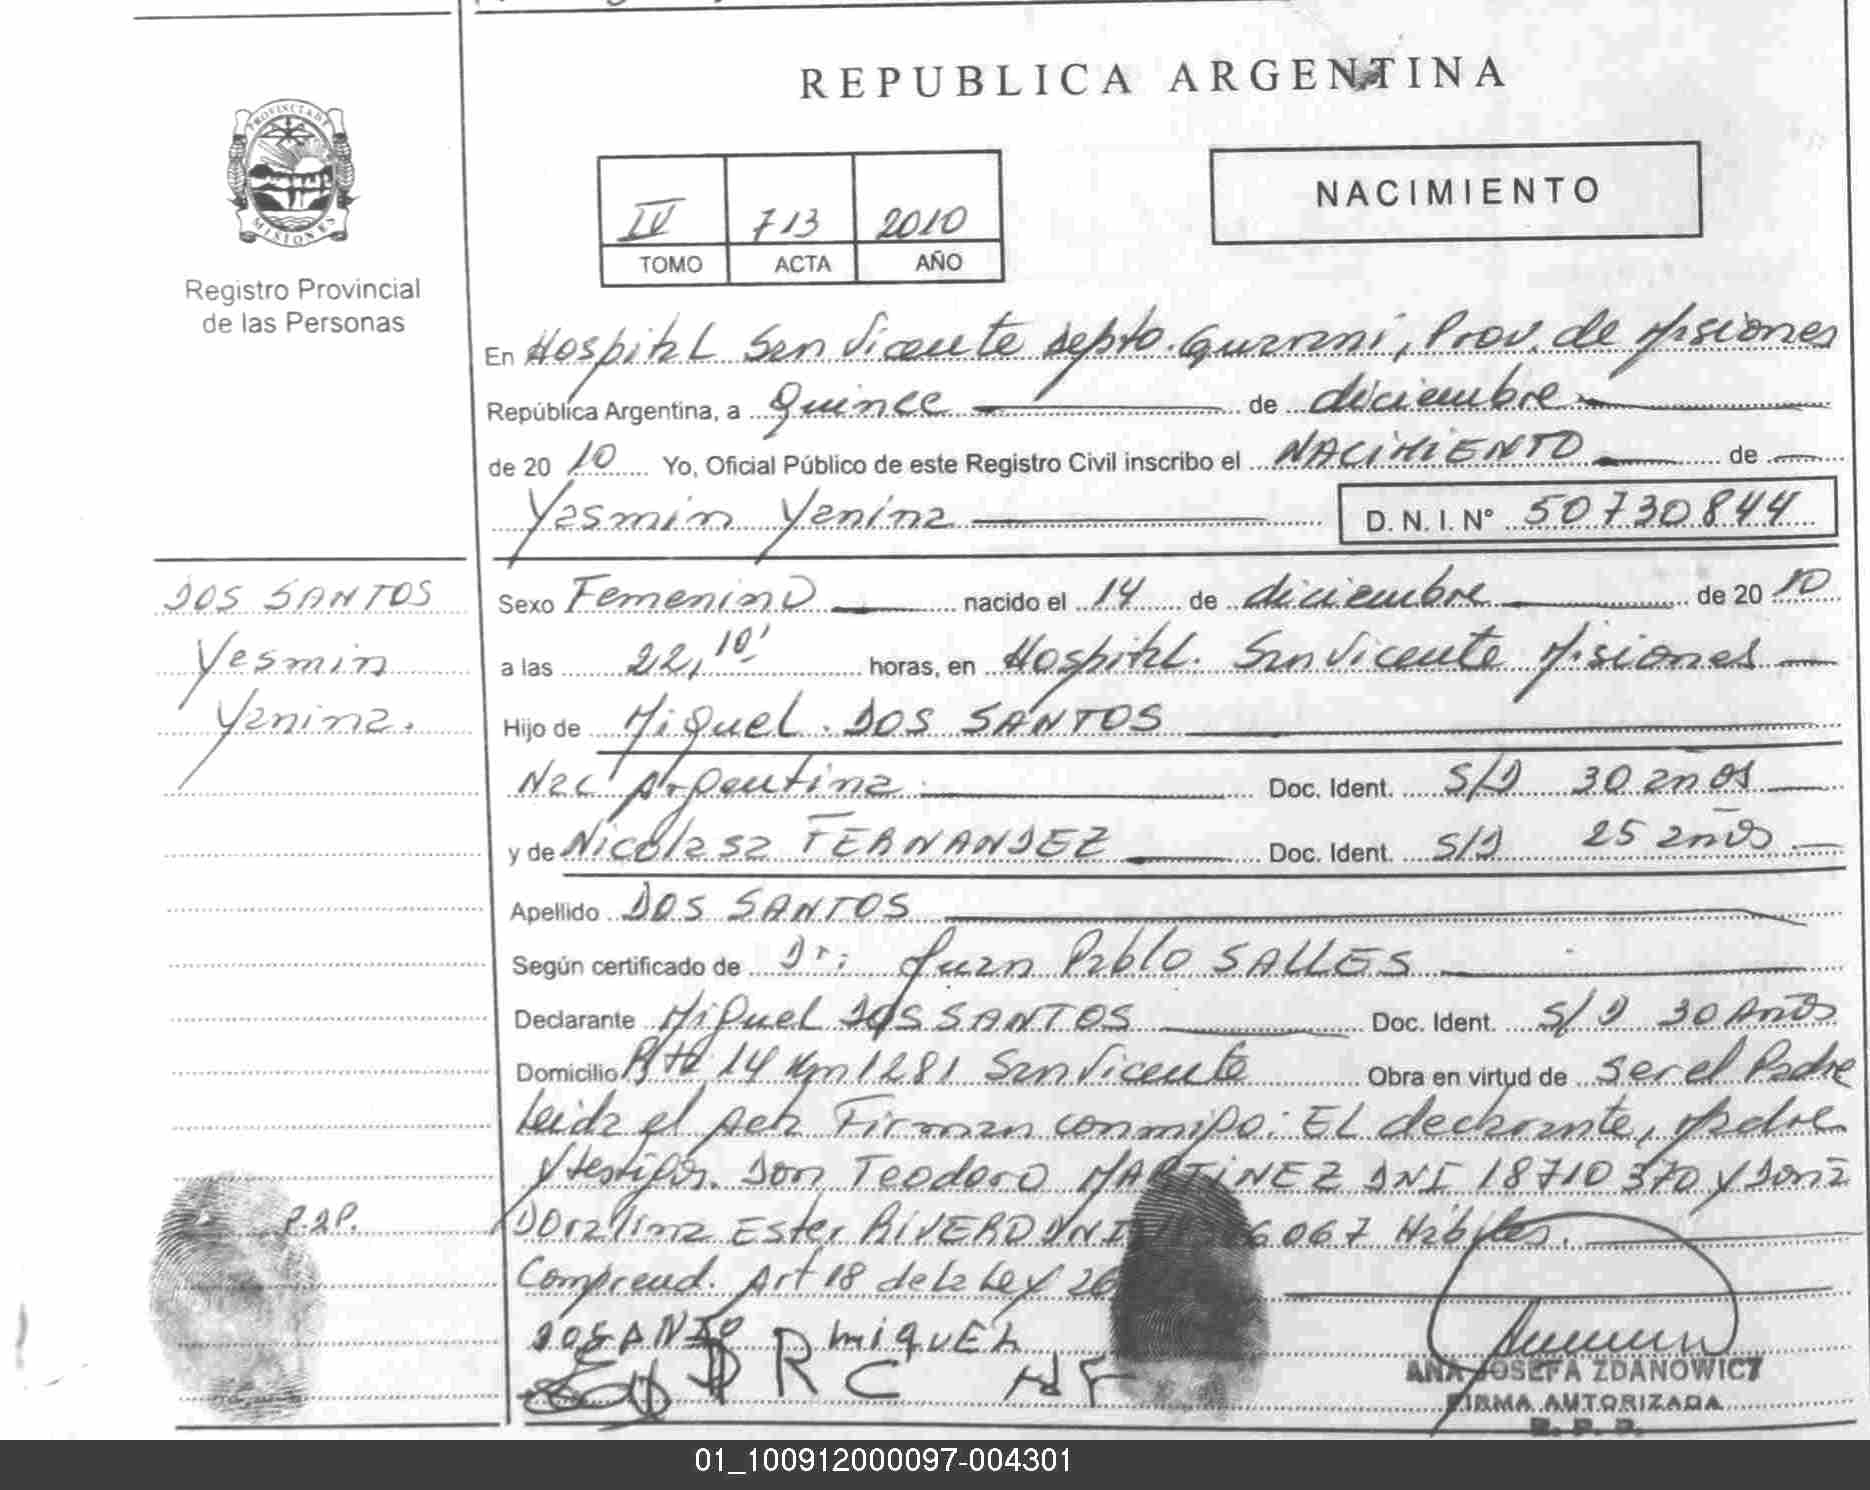 REPUBLICA ARGENTINA
PROVINCIA DE
MISIONES
Registro Provincial
de las Personas
IV 713 2010
TOMO ACTA AÑO
NACIMIENTO
En Hospital San Vicente depto. Guarani, Prov. de Misiones
República Argentina, a Quince de diciembre
de 20 10 Yo, Oficial Público de este Registro Civil inscribo el NACIMIENTO de
Yasmin Yanina D. N. I. Nº 50730844
DOS SANTOS
Yasmin
Yanina.
Sexo Femenino nacido el 14 de diciembre de 20 10
a las 22,10' horas, en Hospital. San Vicente Misiones
Hijo de Miguel. DOS SANTOS
Nac Argentina Doc. Ident. S/D 30 años
y de Nicolasa FERNANDEZ Doc. Ident. S/D 25 años
Apellido DOS SANTOS
Según certificado de Dr: Juan Pablo SALLES
Declarante Miguel DOS SANTOS Doc. Ident. S/D 30 Años
Domicilio Rta 14 Km 1281 San Vicente Obra en virtud de ser el Padre
Leida el Acta Firman conmigo: EL declarante, Madre
y testigos. Don Teodoro MARTINEZ DNI 18710370 y Doña
P.2P.
Doralina Ester RIVERO DNI 6067 Hábiles.
Comprend. Art 18 de la Ley 26
DOSANTO MIQUEL
R C NF
ANA JOSEFA ZDANOWICZ
FIRMA AUTORIZADA
R. P. P.
01_100912000097-004301